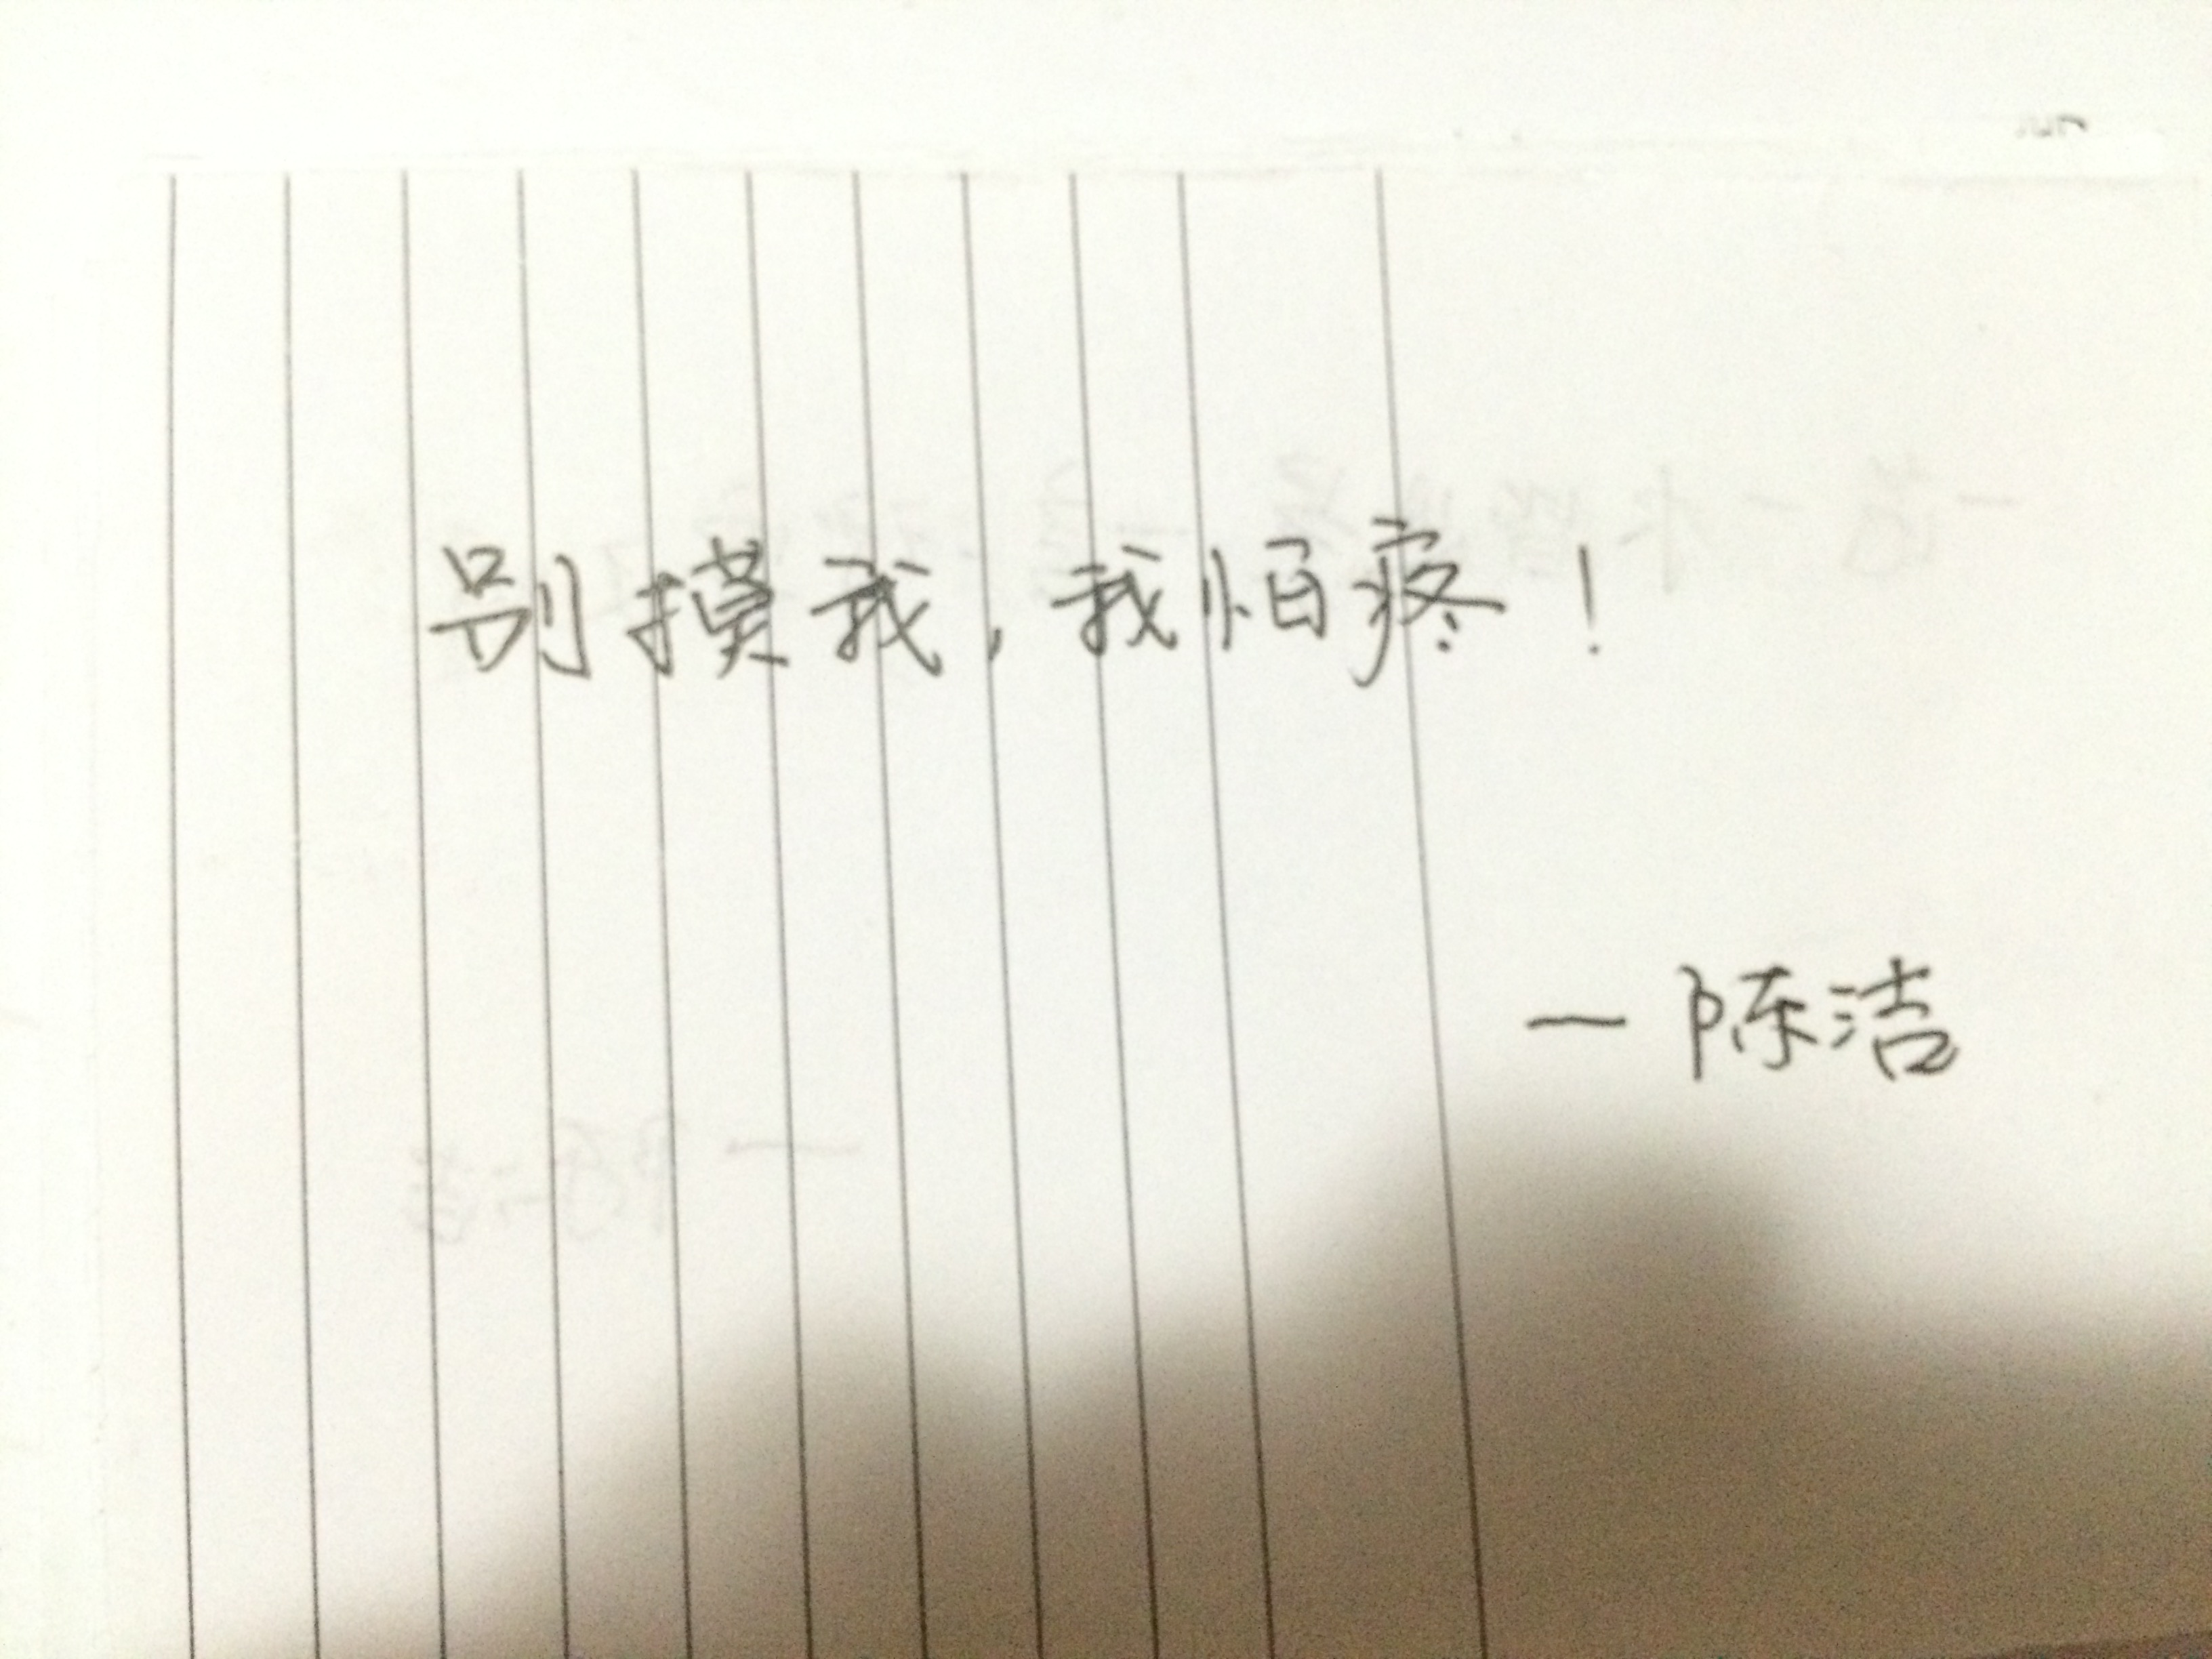 别摸我，我怕疼！
— 陈洁